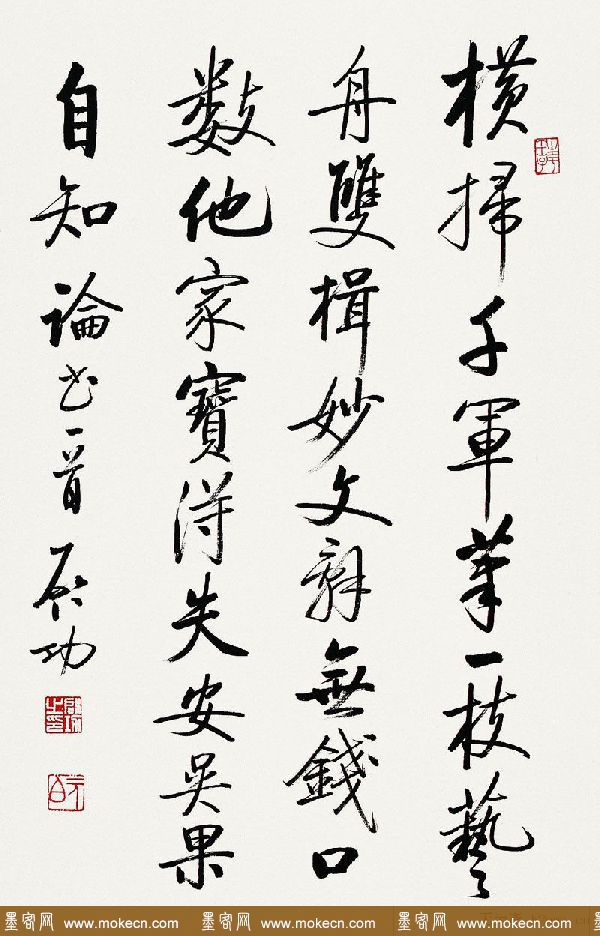 橫掃千軍筆一枝藝
舟雙楫妙文辭無錢口
數他家寶得失安吳果
自知論書一首啟功
墨客网 www.mokecn.com 墨客网 www.mokecn.com 墨客网 www.mokecn.com 墨客网